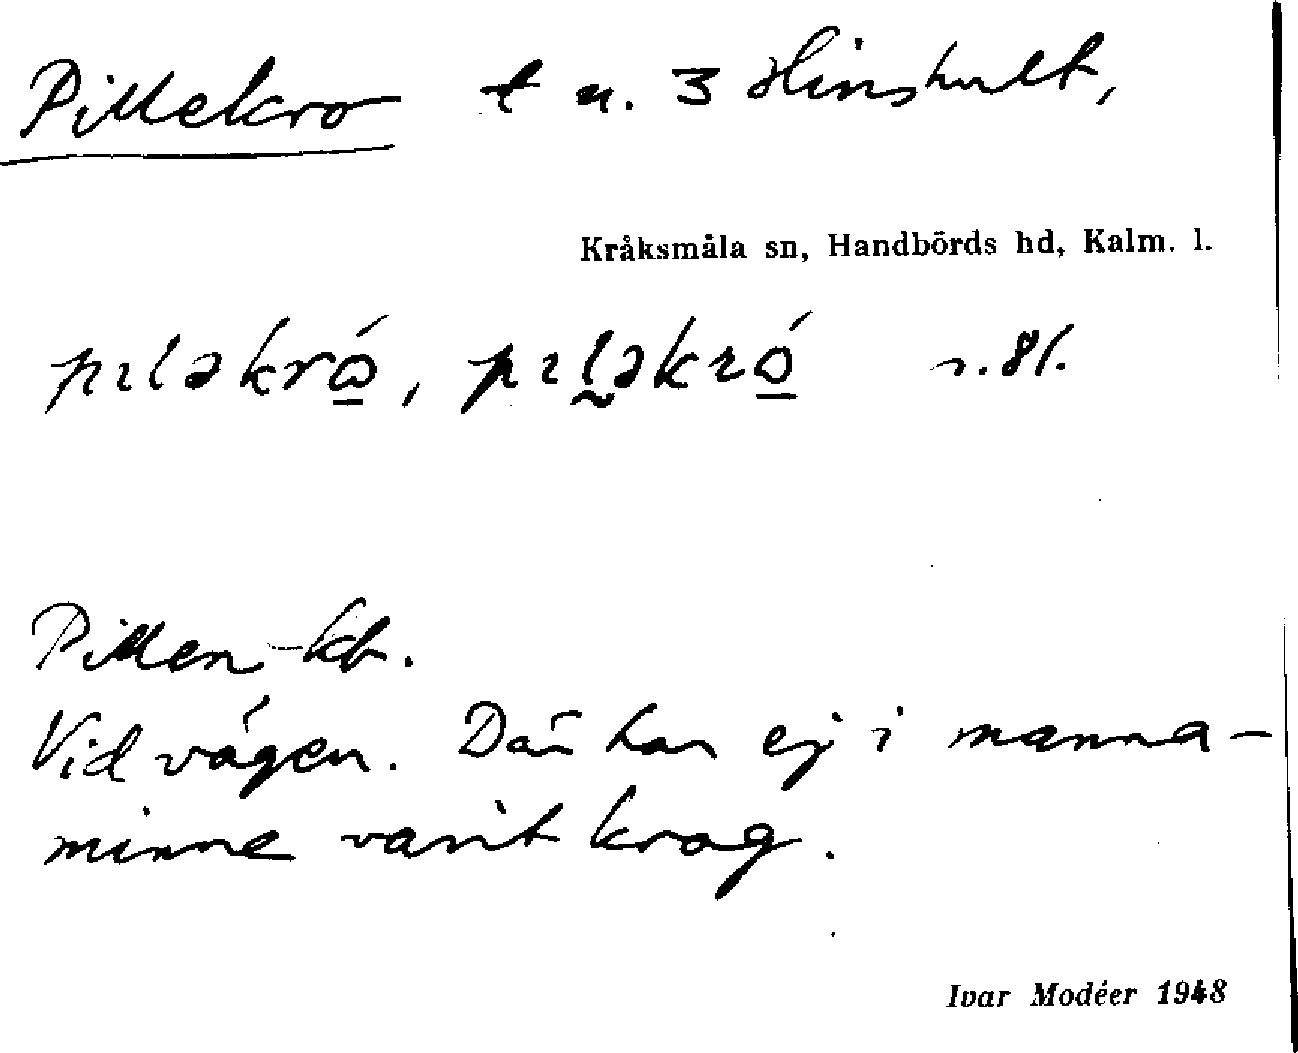 Pillekro t u. 3 Hinshult,
Kråksmåla sn, Handbörds hd, Kalm. l.
pıləkró̲, pıl̰əkró̲ s. 81.
Pillen-kb.
Vid vägen. Där har ej i manna-
minne varit krog.
Ivar Modéer 1948